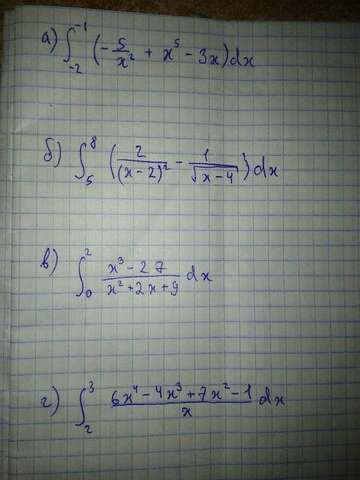 а) ∫₋₂⁻¹ (-5/x² + x⁵ - 3x)dx
б) ∫₅⁸ (2/(x-2)² - 1/√(x-4))dx
в) ∫₀² (x³-27)/(x²+2x+9) dx
г) ∫₂³ (6x⁴-4x³+7x²-1)/x dx